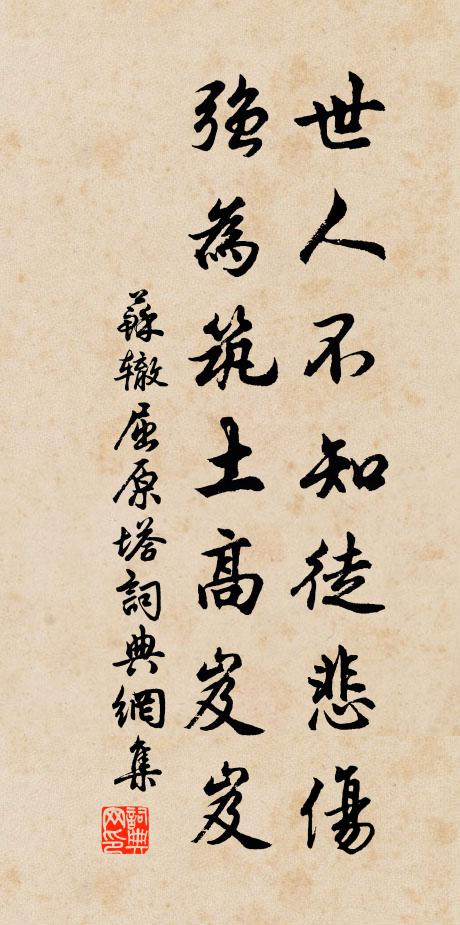 世人不知徒悲傷
強為筑土高岌岌
蘇辙屈原塔詞典網集
詞典网印